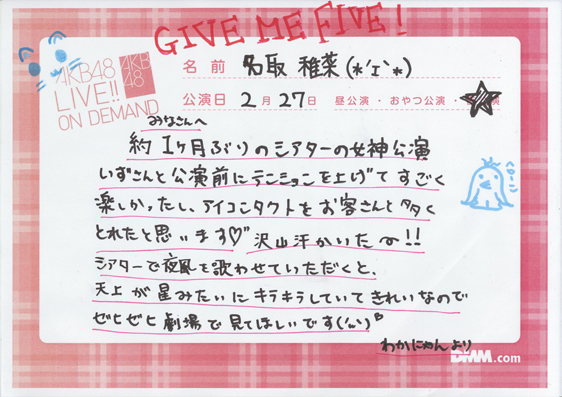 GIVE ME FIVE!
AKB48
LIVE!!
ON DEMAND
AKB
48
名前 名取 稚菜(*´ェ`*)
公演日 2月27日 昼公演・おやつ公演・
みなさんへ
約1ヶ月ぶりのシアターの女神公演
いずさんと公演前にテンションを上げてすごく
楽しかったし、アイコンタクトをお客さんと多く
とれたと思います♡" 沢山汗かいたー!!
シアターで夜風を歌わせていただくと、
天上が星みたいにキラキラしていてきれいなので
ぜひぜひ劇場で見てほしいです('ω')
わかにゃんより
DMM.com